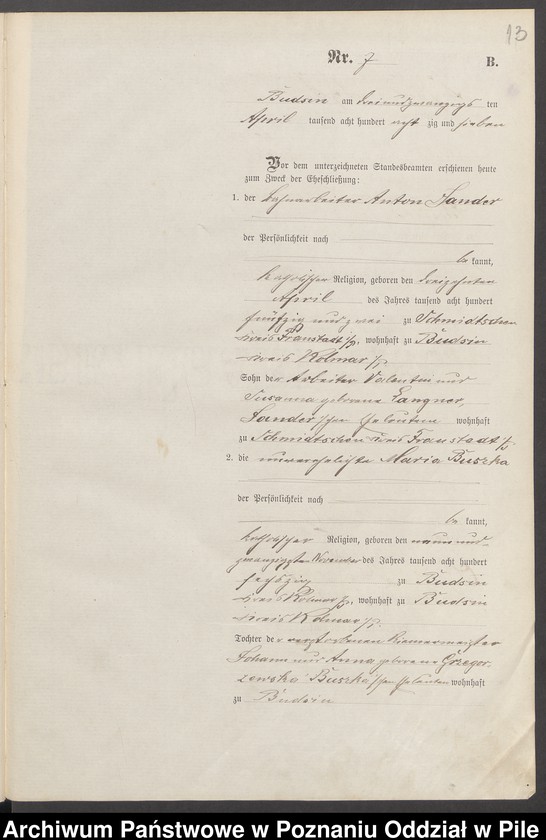 13
Nr. 7
B.
Budsin am dreiundzwanzigs ten
April tausend acht hundert acht zig und sieben
Vor dem unterzeichneten Standesbeamten erschienen heute
zum Zweck der Eheschließung:
1. der Bahnarbeiter Anton Sander
der Persönlichkeit nach
be kannt,
katholischer Religion, geboren den dreizehnten
April des Jahres tausend acht hundert
fünfzig und zwei zu Schmidtschen
Kreis Fraustadt, wohnhaft zu Budsin
Kreis Kolmar i/P.
Sohn der Arbeiter Valentin und
Susanna geborene Langner,
Sander'schen Eheleuten wohnhaft
zu Schmidtschen Kreis Fraustadt
2. die unverehelichte Maria Buszka
der Persönlichkeit nach
be kannt,
katholischer Religion, geboren den neunund-
zwanzigsten November des Jahres tausend acht hundert
sechszig zu Budsin
Kreis Kolmar i/P., wohnhaft zu Budsin
Kreis Kolmar i/P.
Tochter der verstorbenen Riemermeister
Johann und Anna geborene Grzegor-
zewska Buszka'schen Eheleuten wohnhaft
zu Budsin
Archiwum Państwowe w Poznaniu Oddział w Pile